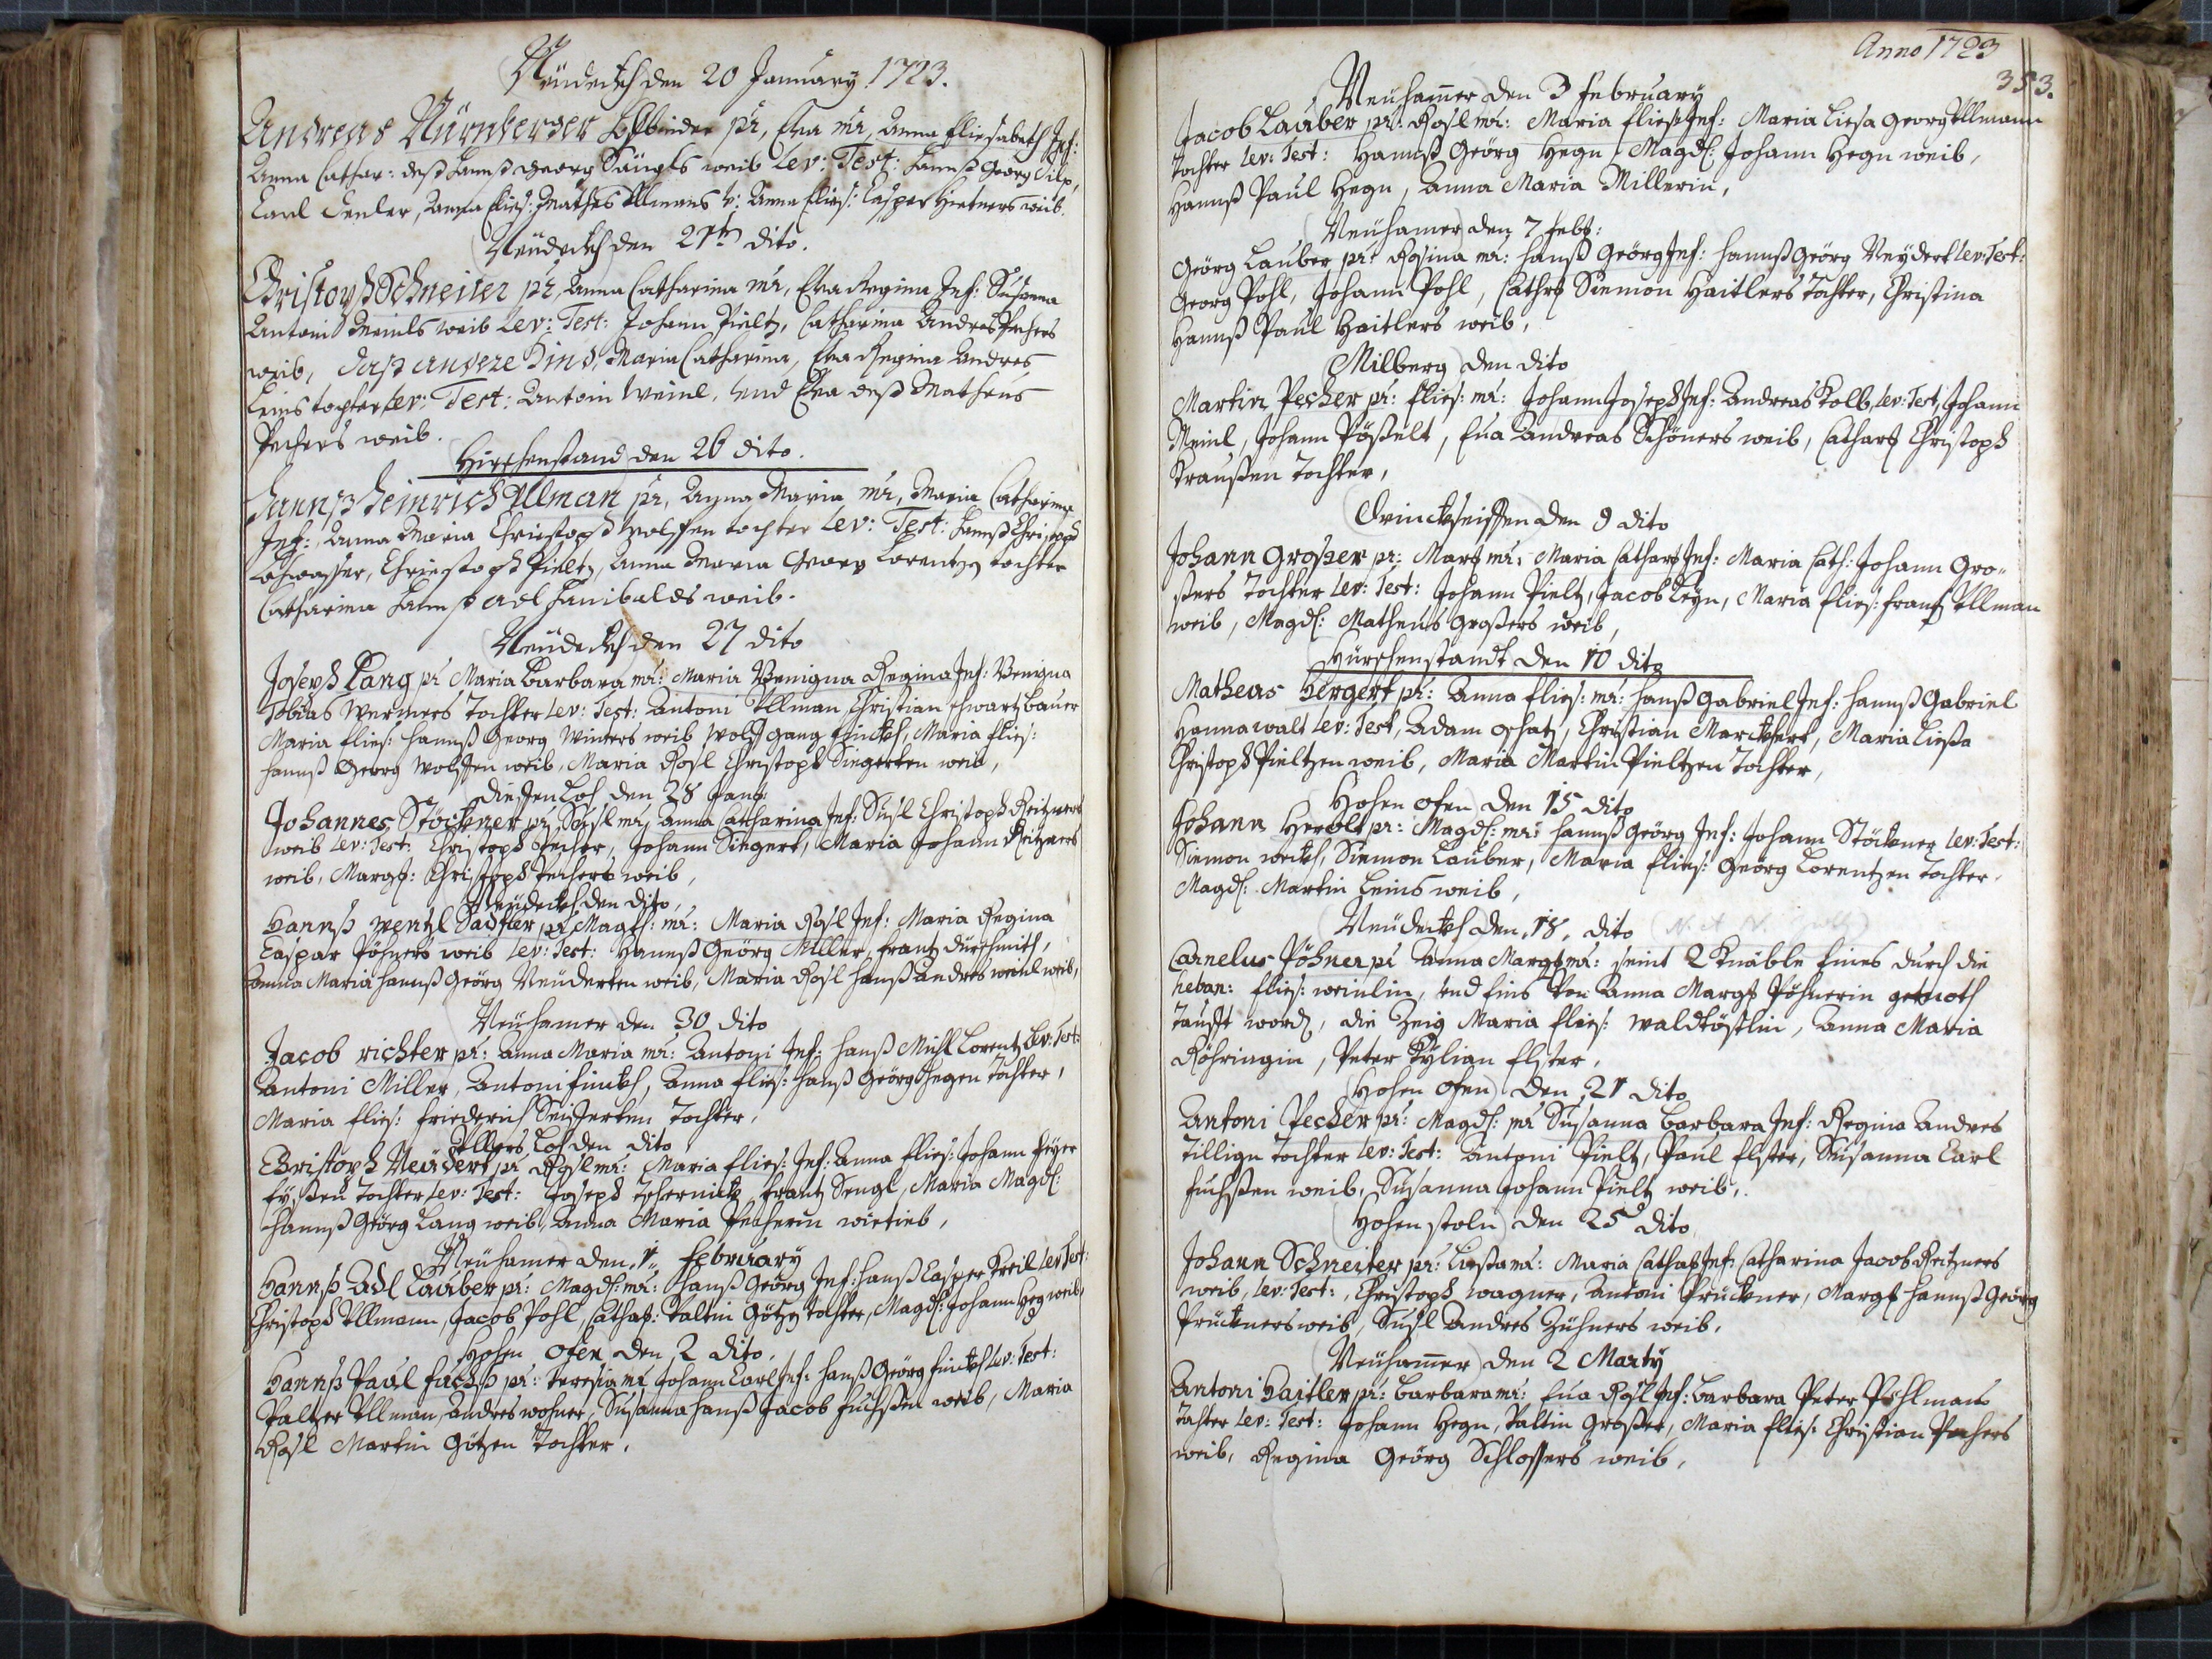 Neudeckh den 20 January 1723.
Andreas Nürnberger pr, Eva mr, Anna Eliesabeth Inf:
Anna Cathar: deß Hannß Georg weib Lev: Test: Hannß Georg
Carl Anna Elies: Mathes Ullmans Anna Elies: Casper weib.
Neudeckh den 21th dito.
Christoph Schneiter pr, Anna Catharina mr, Eva Regina Inf: Susanna
Antoni Meinls weib Lev: Test: Johann Pieltz, Catharina Andres Pechers
weib, daß andere Kind, Maria Catharina, Eva Regina Andres
tochter Lev: Test: Antoni Meinl, und Eva deß Matheus
Pechers weib.
Hirschenstand den 26 dito.
Hannß Heinrich Ullman pr, Anna Maria mr, Maria Catharina
Inf: Anna Maria Christoph Wolffen tochter Lev: Test: Hannß Christoph
Christoph Pieltz, Anna Maria Georg Lorentzen tochter
Catharina Hannß Adl Hanibalds weib.
Neudeckh den 27 dito
Joseph Lang pr Maria Barbara mr: Maria Benigna Regina Inf: Benigna
Tobias Werners Tochter Lev: Test: Antoni Ullman Christian schwartzbauer
Maria Elies: Hannß Georg Winters weib Wolffgang Finckh, Maria Elies:
Hannß Georg Wolffen weib, Maria Rosl Christoph Singerten weib,
dieffenloh den 28 Janu
Johannes Stöckner pr, Susl mr, Anna Catharina Inf: Susl Christoph Reitzners
weib Lev: Test: Christoph Pecher, Johann Singert, Maria Johann Reitzners
weib, Marg: Christoph Pechers weib,
Neudeckh den dito,
Hannß Wentzl Sadtler pr Magd: mr: Maria Rosl Inf: Maria Regina
Caspar Pöhners weib Lev: Test: Hannß Geörg Miller, Frantz Dürschmith,
Anna Maria Hannß Geörg Neuderten weib, Maria Rosl Hannß Andres Meinl weib,
Neuhamer den 30 dito
Jacob richter pr: Anna Maria mr: Antoni Inf: Hannß Michl Lorentz Lev: Test:
Antoni Miller, Antoni Finckh, Anna Elies: Hannß Geörg Hegen Tochter,
Maria Elies: Friederich Seifferten Tochter,
Ullersloh den dito
Christoph Neudert pr Rosl mr: Maria Elies: Inf: Anna Elies: Johann
Tochter Lev: Test: Joseph Tschernich, Frantz Sengl, Maria Magdl:
Hannß Geörg Lang weib, Anna Maria Pecherin wietieb,
Neuhamer den 1 February
Hannß Adl Lauber pr: Magdl: mr: Hannß Geörg Inf: Hannß Casper Kreil Lev: Test:
Christoph Ullmann, Jacob Pohl, Cathar: Paltin Götzen Tochter, Magdl: Johann Heg weib,
Hohen Ofen den 2 dito,
Hannß Paul Fuchß pr: Teresia mr Johann Carl Inf: Hannß Geörg Finckh Lev: Test:
Paltzer Ullman, Andres wohner, Susanna Hannß Jacob Fuchßen weib, Maria
Rosl Martin Götzen Tochter.
Anno 1723
353.
Neuhamer den 3 February
Jacob Lauber pr: Rosl mr: Maria Elies Inf: Maria Liesa Georg Ullmann
Tochter Lev: Test: Hannß Geörg Hegn, Magdl: Johann Hegn weib,
Hannß Paul Hegn, Anna Maria Millerin,
Neuhamer den 7 Feb:
Geörg Lauber pr: Rosina mr: Hannß Geörg Inf: Hannß Geörg Neydert Lev: Test:
Georg Pohl, Johann Pohl, Cathr: Siemon Haitlers Tochter, Christina
Hannß Paul Haitlers weib,
Milberg den dito
Martin Pecher pr: Elies: mr: Johann Joseph Inf: Andreas Kolb, Lev: Test, Johann
Meinl, Johann Pößelt, Eva Andreas Schöners weib, Cathar Christoph
Kraußen Tochter,
Drinckseiffen den 9 dito
Johann Großer pr: Marg mr: Maria Cathar Inf: Maria Cath: Johann Gro-
ßers Tochter Lev: Test: Johann Pieltz, Jacob Keyn, Maria Elies: Frantz Ullman
weib, Magdl: Matheus Großers weib,
Hürschenstandt den 10 dito
Matheas Hergert pr: Anna Elies: mr: Hannß Gabriel Inf: Hannß Gabriel
Hannawalt Lev: Test, Adam schatz, Christian Marckhert, Maria Ließa
Christoph Pieltzen weib, Maria Martin Pieltzen Tochter,
Hohen ofen den 15 dito
Johann Herolt pr: Magdl: mr: Hannß Geörg Inf: Johann Stöckner Lev: Test:
Siemon Siemon Lauber, Maria Elies: Geörg Lorentzen Tochter,
Magdl: Martin Heins weib,
Neudeckh den 18, dito
Carnelus Pöhner pr Anna Marg mr: seint 2 Knäble Eines durch die
heban: Elies: Meinlin, und Eins von Anna Marg Pöhnerin getnoth
taufft word, die Zeig Maria Elies: Waldtöstlin, Anna Maria
Röhringin, Peter Kylian Elster,
Hohen Ofen den 21 dito
Antoni Pecher pr: Magdl: mr Susanna Barbara Inf: Regina Andres
Tillign Tochter Lev: Test: Antoni Pieltz, Paul Elster, Susanna Carl
Fuchßen weib, Susanna Johann Pieltz weib,
Hohen stoln den 25 dito
Johann Schneiter pr: Ließa mr: Maria Cathar Inf: Catharina Jacob Reitzners
weib, Lev: Test:, Christoph wagner, Antoni Prückner, Marg Hannß Geörg
Prückners weib, Susl Andres Zühners weib,
Neuhamer den 2 Marty
Antoni Haitler pr: Barbara mr: Eva Rosl Inf: Barbara Peter Pöhlmans
Tochter Lev: Test: Johann Hegn, Paltin Großer, Maria Elies: Christian Pechers
weib, Regina Geörg Schlossers weib,